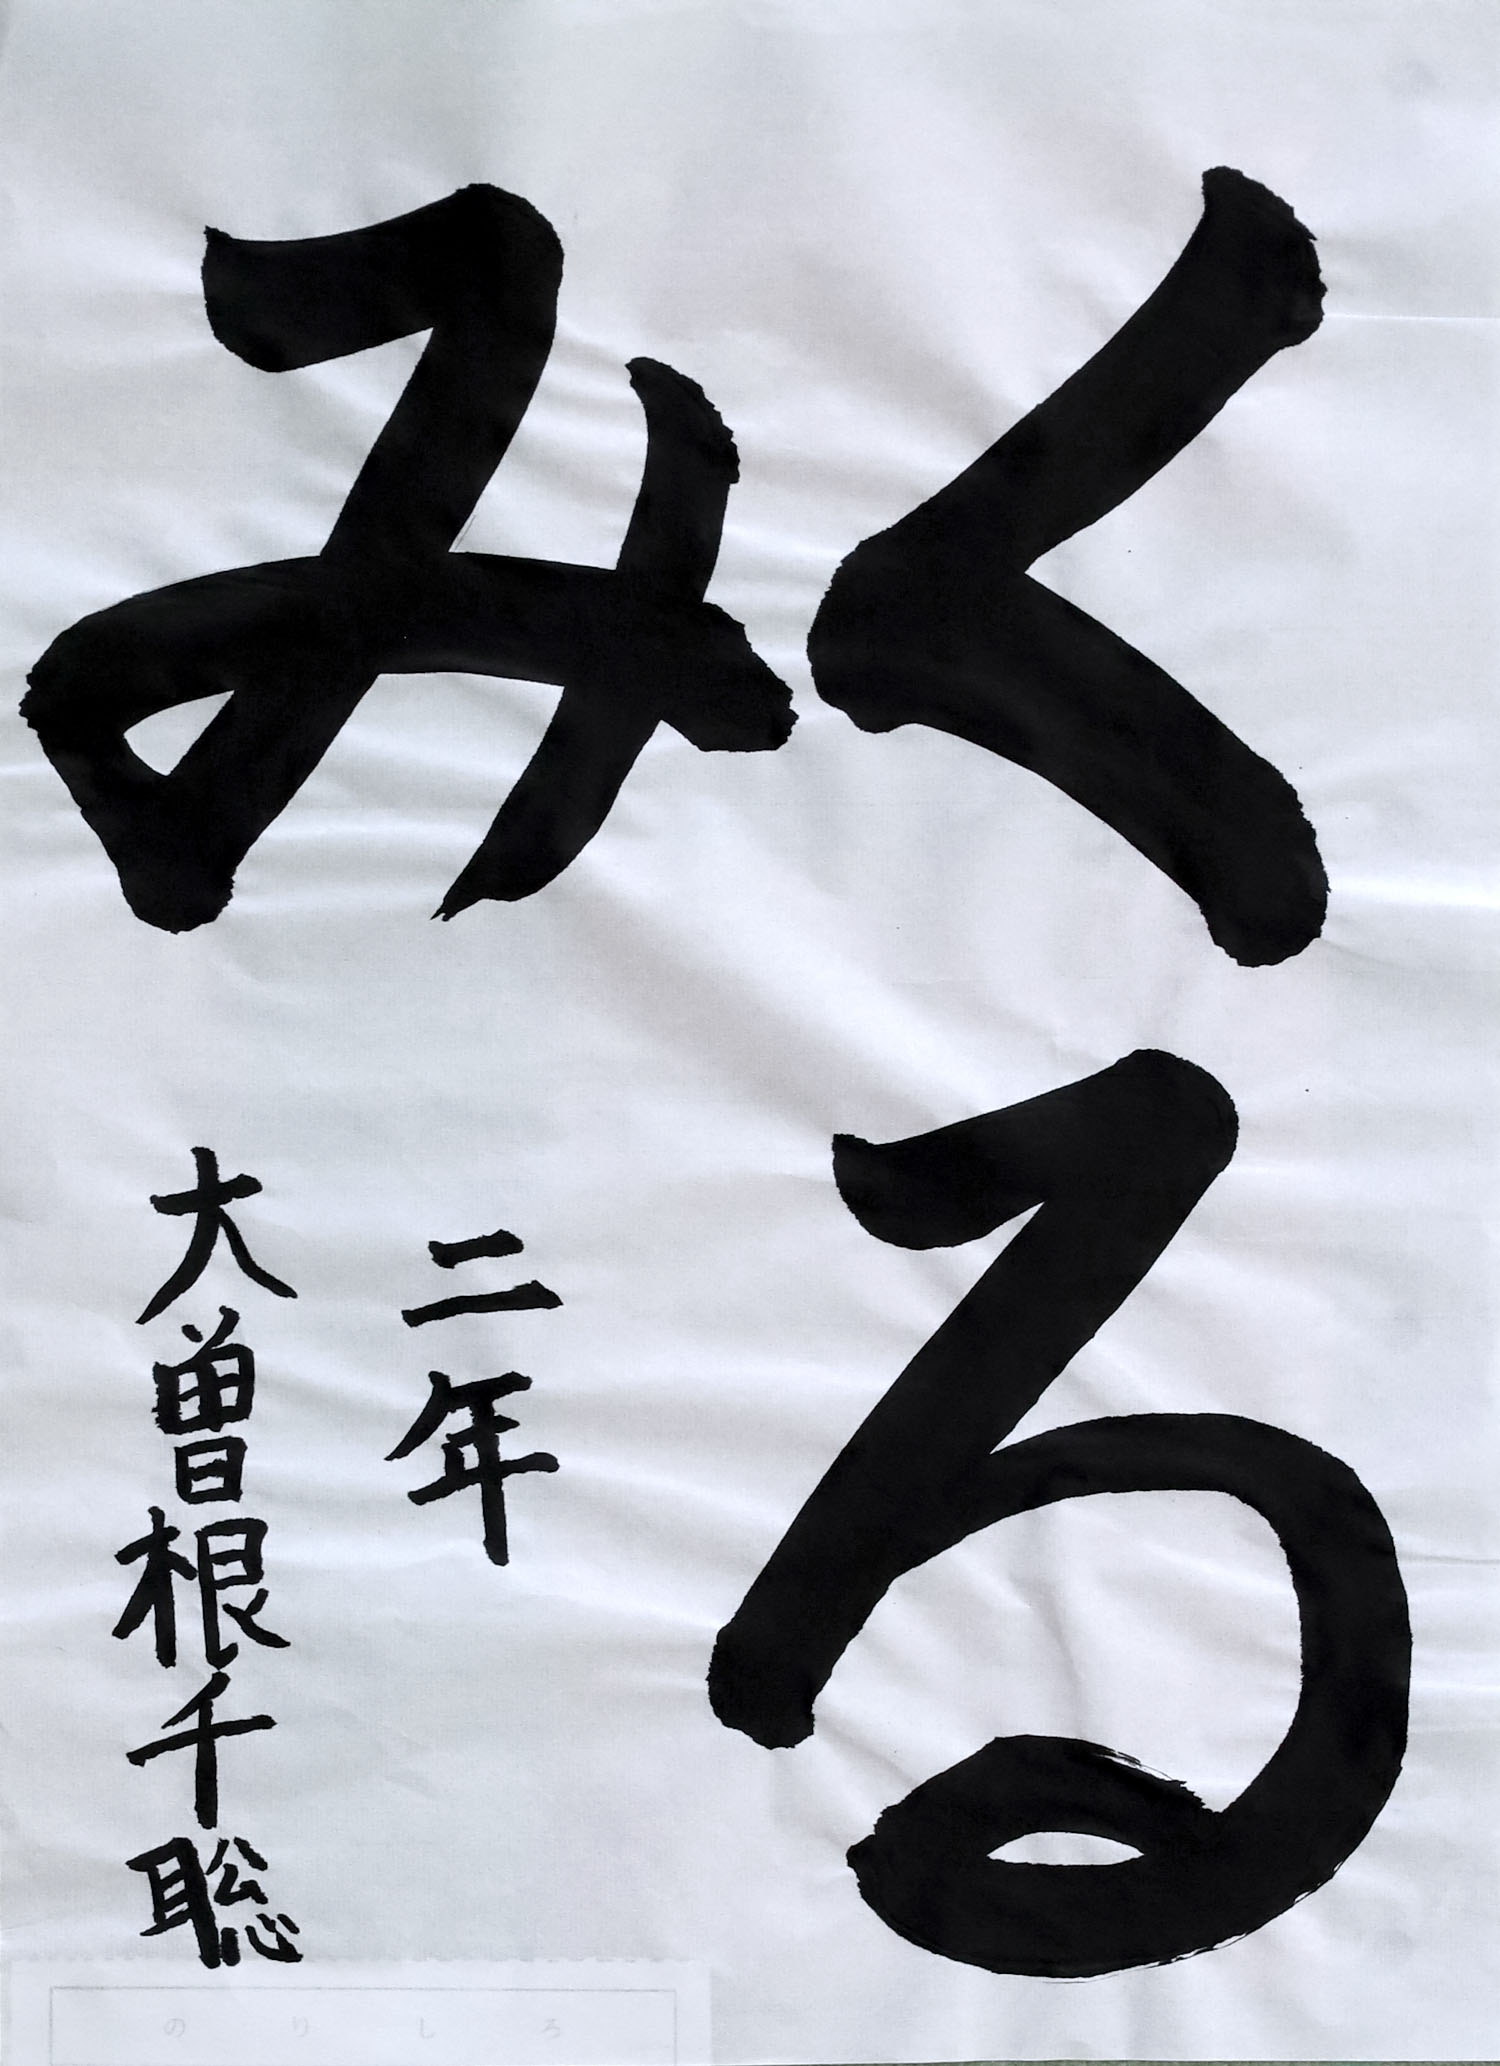 くる
み
二年
大曽根千聡
のりしろ